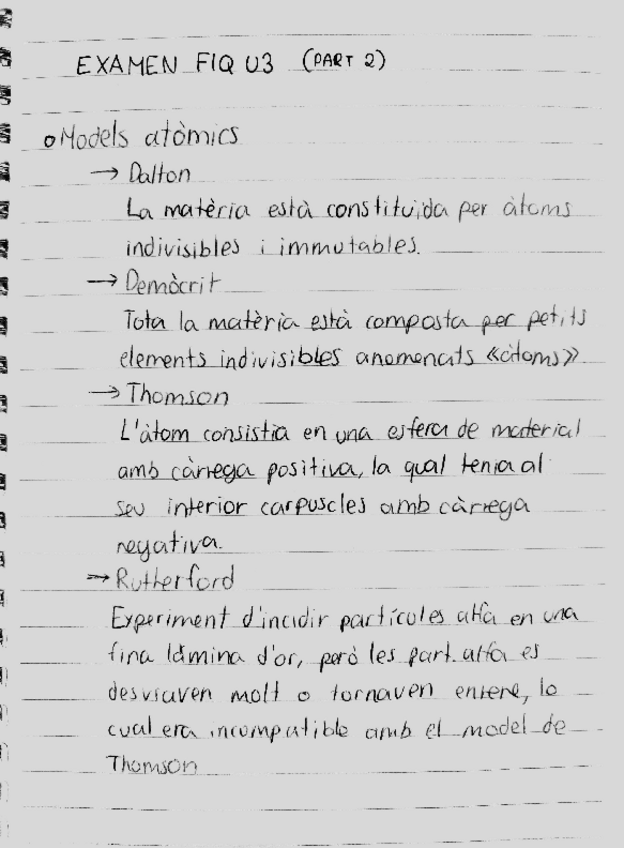 EXAMEN FIQ U3 (PART 2)
Models atòmics
→ Dalton
La matèria està constituïda per àtoms
indivisibles i immutables.
→ Demòcrit
Tota la matèria està composta per petits
elements indivisibles anomenats «àtoms»
→ Thomson
L'àtom consistia en una esfera de material
amb càrrega positiva, la qual tenia al
seu interior carpuscles amb càrrega
negativa.
→ Rutherford
Experiment d'incidir partícules alfa en una
fina làmina d'or, però les part. alfa es
desviaven molt o tornaven enrere, lo
cual era incompatible amb el model de
Thomson